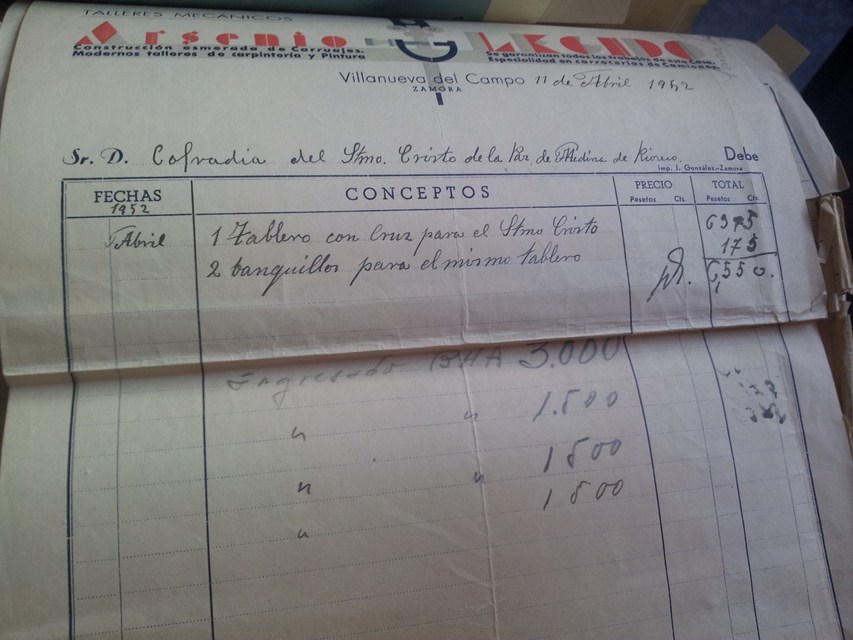 TALLERES MECANICOS
Arsenio
Construcción esmerada de Carruajes.
Modernos talleres de carpintería y Pintura
Se garantizan todos los trabajos de esta Casa.
Especialidad en carrocerías de Camiones.
Villanueva del Campo 11 de Abril 1952
ZAMORA
Sr. D. Cofradia del Stmo. Cristo de la Paz de Medina de Rioseco. Debe
Imp. J. González.-Zamora
FECHAS CONCEPTOS PRECIO TOTAL
1952 Pesetas Cts. Pesetas Cts.
Abril 1 Tablero con Cruz para el Stmo Cristo 6375
2 banquillos para el mismo tablero 175
6,550.
Ingresado 3.000
" " 1.500
" " 1500
" 1500